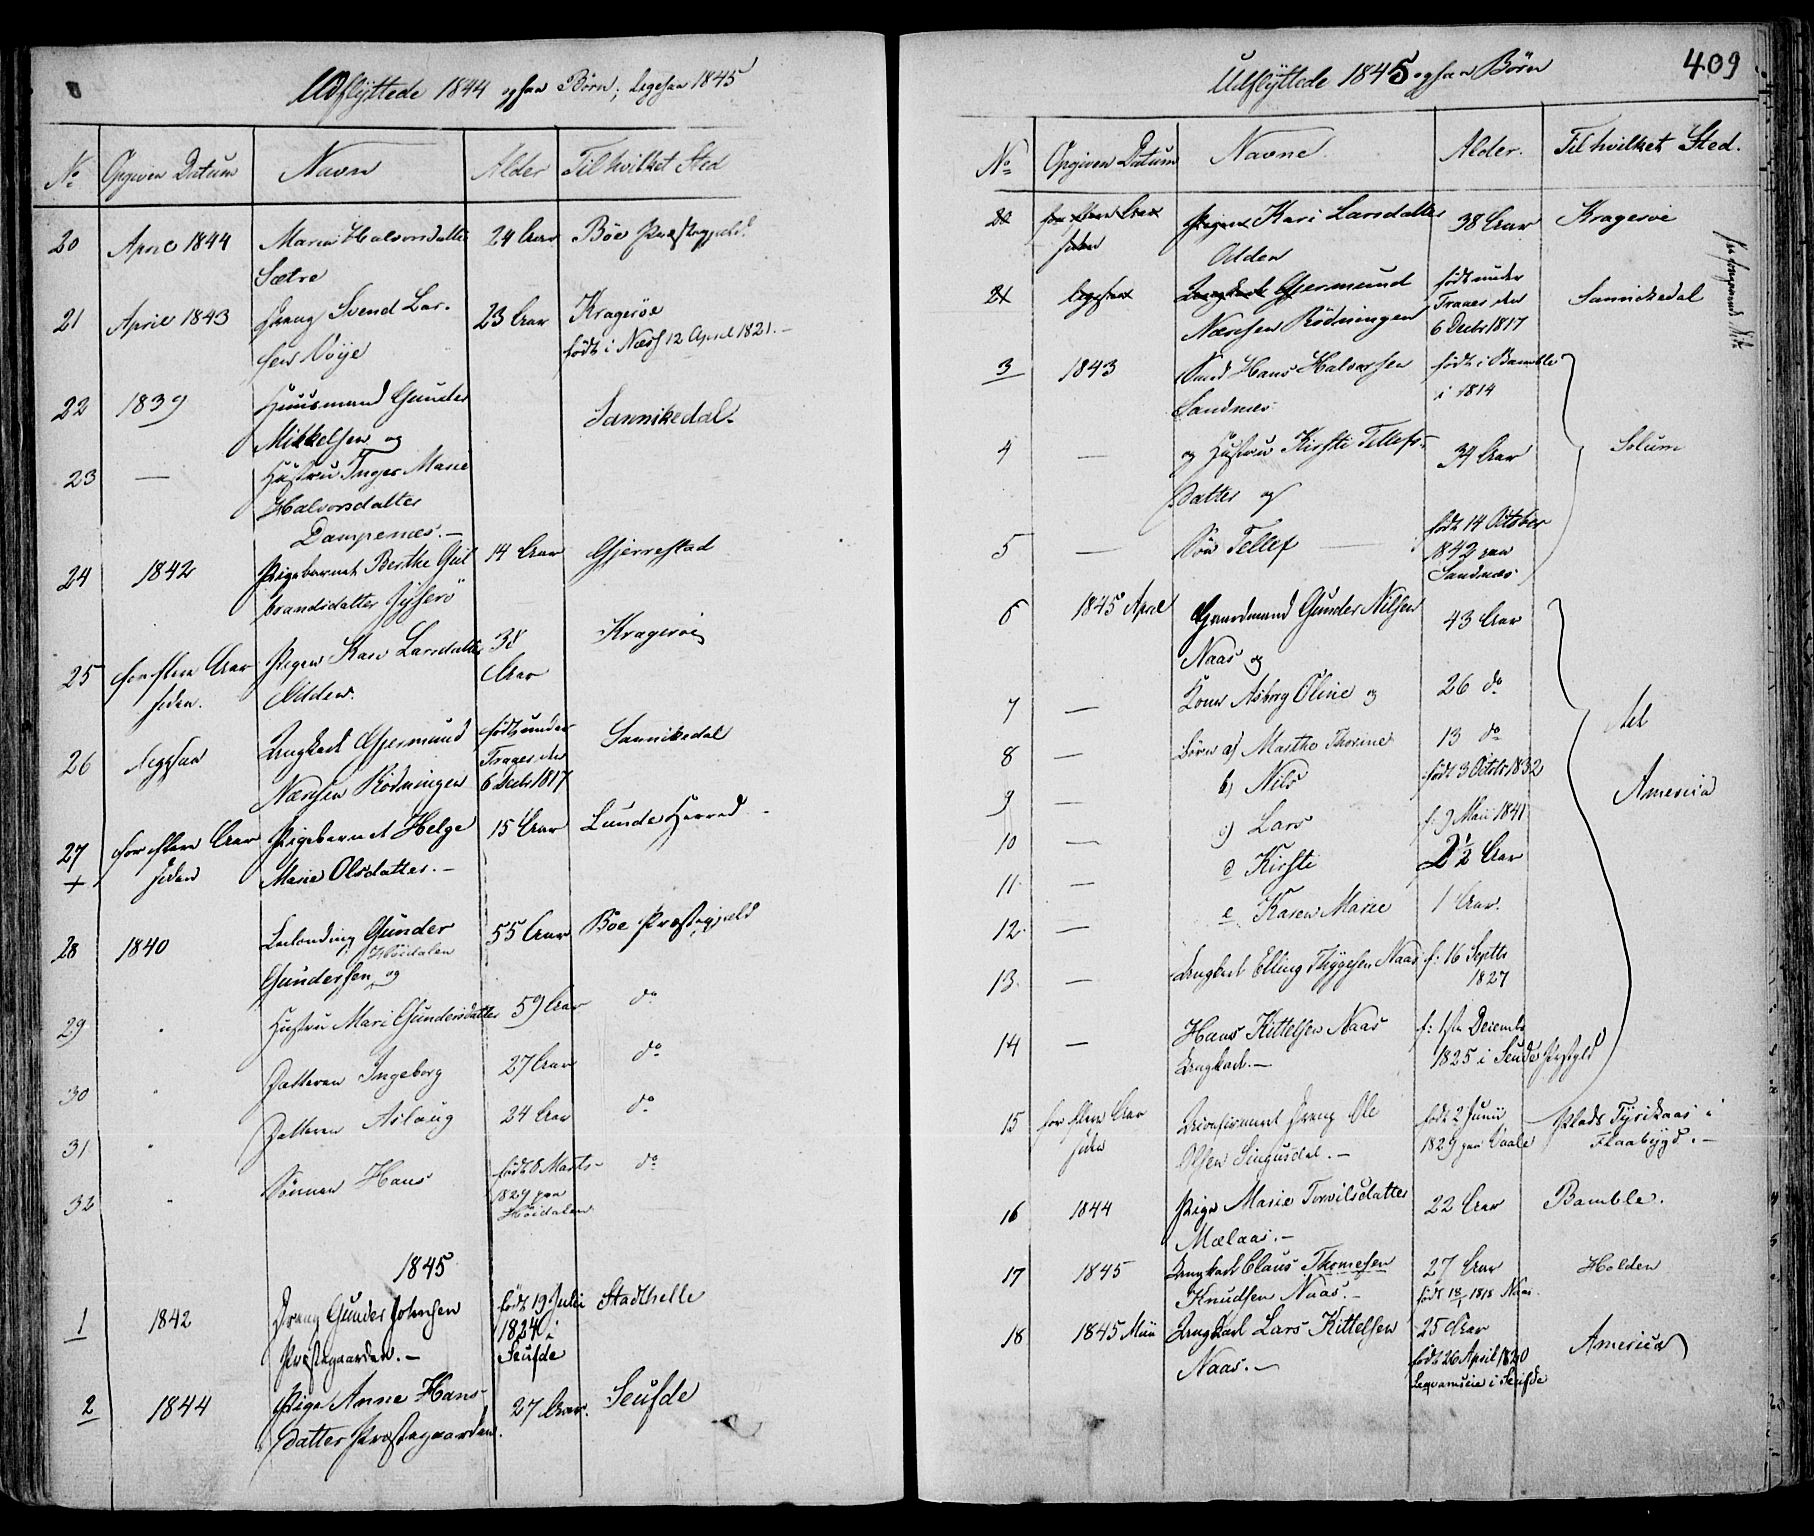 Udflyttede 1844 ogsaa Børn, ligesaa 1845
No Opgiven Datum Navn Alder Til hvilket Sted
20 April 1844 Maria Halvorsdatter 24 Aar Böe Præstegjeld
Sætre
21 April 1843 Dreng Svend Lar- 23 Aar Kragerøe
sen Vøije født i Næss 12 April 1821.-
22 1839 Huusmand Gunder Sannikedal.
Mikkelsen og
23 — Hustru Inger Marie
Halvorsdatter
Dampenæs.-
24 1842 Pigebarnet Berthe Gul 14 Aar Gjerrestad
brandsdatter
25 for flere Aar Pigen Kari Larsdatter 38 Kragerøe
siden. Odden. Aar
26 ligesaa Ungkarl Gjermund født under Sannikedal
Næresen Rödningen Traaes den
6 Decbr 1817
27 for flere Aar Pigebarnet Helge 15 Aar Lunde Herred
+ siden Marie Olsdatter.-
28 1840 Leilænding Gunder 55 Aar Böe Præstegjeld
Høidalen
Gundersen og
29 " Hustru Mari Gundersdatter 59 Aar do
30 " Datteren Ingeborg 27 Aar do
31 " Datteren Aslaug 24 Aar do
32 " Sönnen Hans født 8 Marts do
1829 paa
Høidalen
1845
1 1842 Dreng Gunder Johnsen født 19 Julii Stadthelle
Præstegaarden.- 1824 i
Seufde
2 1844 Pige Anne Hans- 27 Aar. Seufde
datter Præstegaarden.
Udflyttede 1845 ogsaa Børn 409
No Opgiven Datum Navne Alder. Til hvilket Sted.
20 for flere Aar Pigen Kari Larsdatter 38 Aar Kragerøe
siden Odden
21 ligesaa Ungkarl Gjermund født under Sannikedal
Næresen Rödningen Traaes den
6 Decbr 1817
3 1843 Smed Hans Halvorsen født i Bamble
Sandnæs i 1814
4 — og Hustru Kirsti Tellefs- 34 Aar Solum
datter og
5 — Sön Tellef — født 14 October
1842 paa
Sandnæs
6 1845 April Gaardmand Gunder Nilsen 43 Aar
Naas og
7 — Kone Asborg Oline og 26 do
8 — Børn a) Marthe Thorine 13 do Til
9 — b) Nils født 3 Octbr 1832 America
10 — c) Lars f: 9 Maii 1841
11. — d Kirsti 2½ Aar
12. — e Karen Marie 1 Aar.
13. — Ungkarl Elling Thygesen Naas f: 16 Septbr
1827
14 — Hans Kittelsen Naas f: 1ste Decemb
Ungkarl.- 1825 i Seufde Prstgld
15 for flere Aar Uconfirmert Dreng Ole født 2 Junii Plads Tyrikaas i
siden Olsen Singusdal.- 1829 paa Vaale Flaabygd.-
16 1844 Pige Marie Torvilsdatter 22 Aar Bamble.
Mælaas.-
17 1845 Ungkarl Claus Thomesen 27 Aar Holden
Knudsen Naas.- født 18/1 1818 Naas.
18 1845 Maii Ungkarl Lars Kittelsen 25 Aar America
Naas.- født 26 April 1820
i Seufde